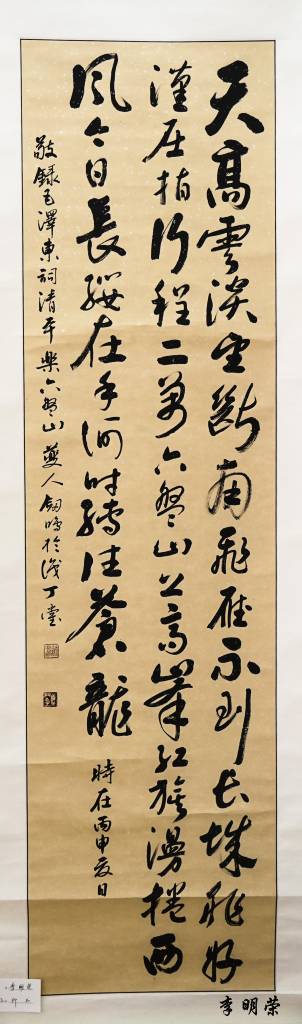 天高雲淡望斷南飛雁不到長城非好
漢屈指行程二萬六盤山上高峯紅旗漫捲西
風今日長纓在手何時縛住蒼龍
時在丙申夏日
敬錄毛澤東詞清平樂六盤山 人劍鳴於識丁堂
李明荣